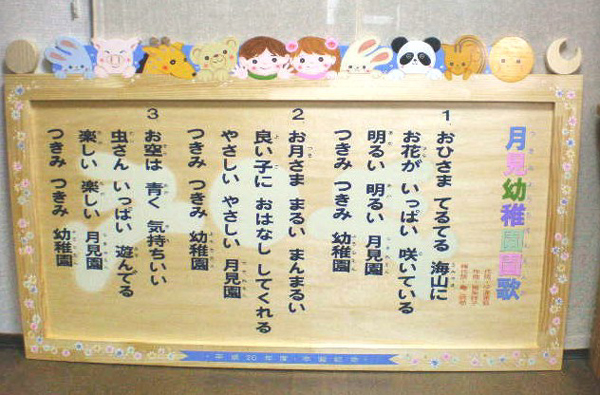 月見幼稚園園歌
1 おひさま てるてる 海山に
お花が いっぱい 咲いている
明るい 明るい 月見園
つきみ つきみ 幼稚園
2 お月さま まるい まんまるい
良い子に おはなし してくれる
やさしい やさしい 月見園
つきみ つきみ 幼稚園
3 お空は 青く 気持ちいい
虫さん いっぱい 遊んでる
楽しい 楽しい 月見園
つきみ つきみ 幼稚園
平成20年度 卒園記念